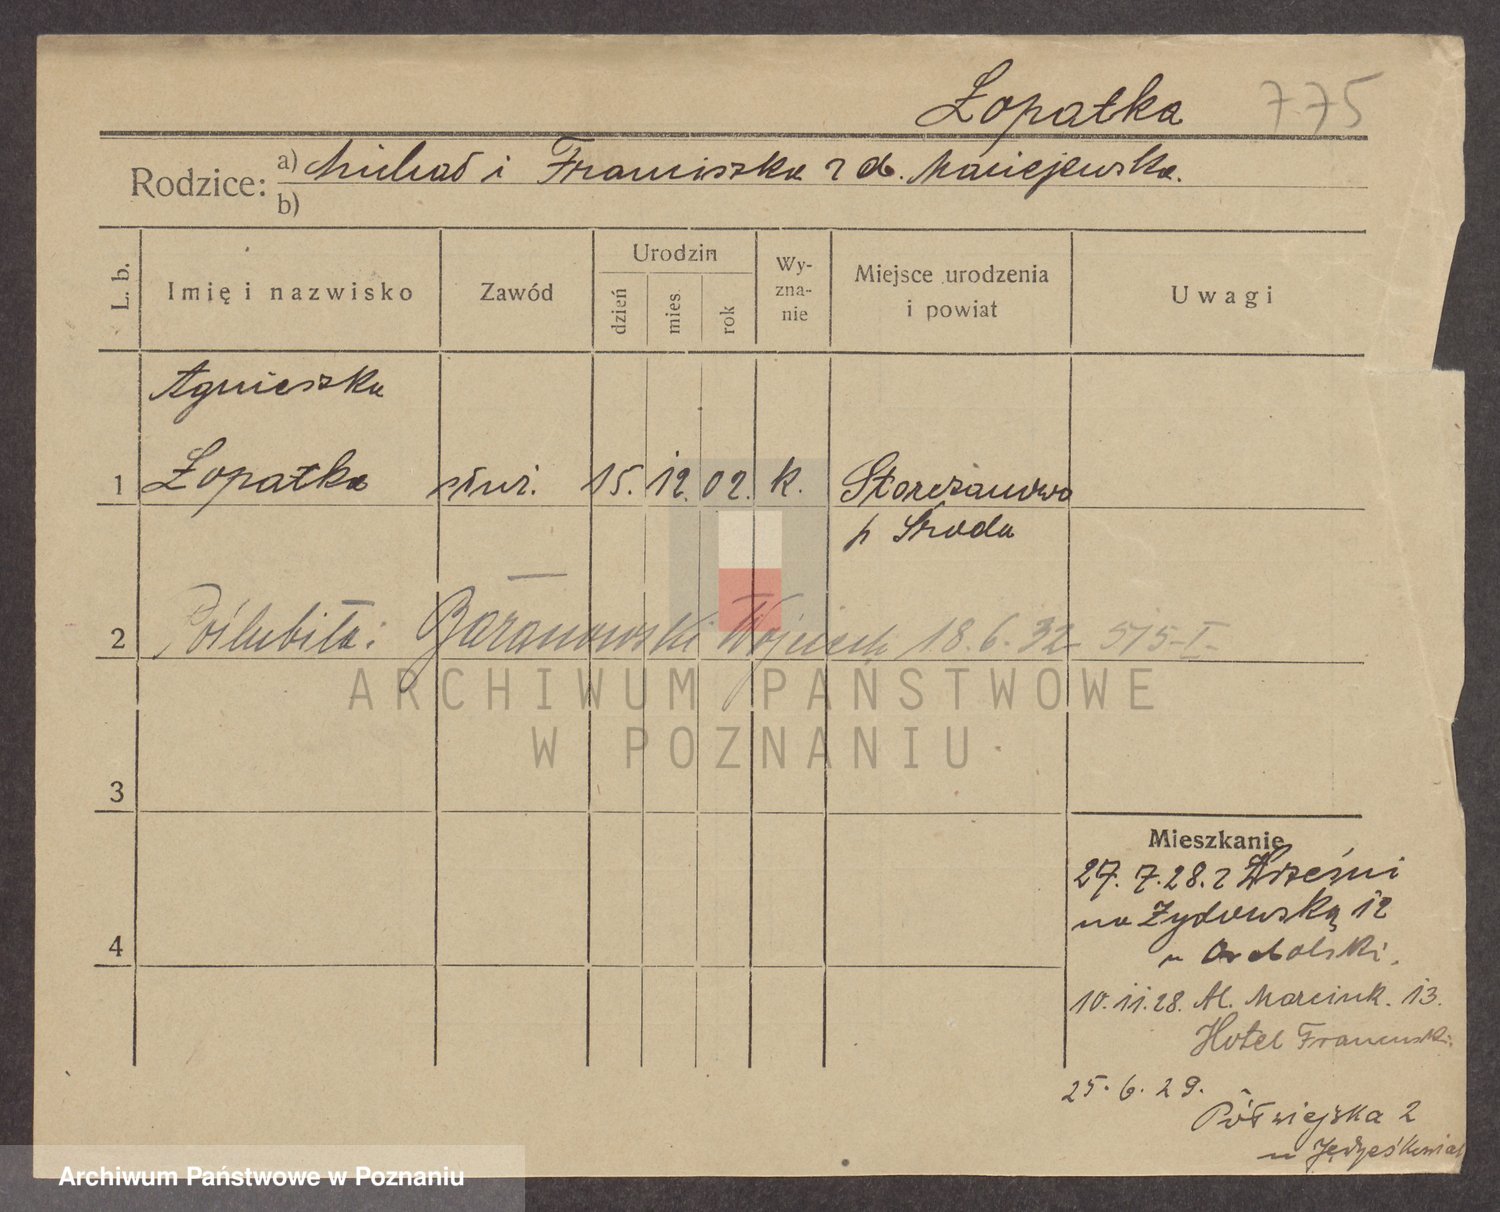 Łopatka 775
Rodzice: a) Michał i Franciszka z d. Maciejewska.
b)
L. b.
Imię i nazwisko
Zawód
Urodzin
dzień
mies.
rok
Wy-
zna-
nie
Miejsce urodzenia
i powiat
Uwagi
Agnieszka
1 Łopatka służ. 15. 12. 02. k.
p Środa
2 Poślubiła: Baranowski Wojciech 18.6.32 515-I-
3
4
Mieszkanie
27. 7. 28. z Wrześni
na Żydowską 12
10. 11. 28. Al. Marcink. 13.
Hotel Francuski.
25. 6. 29.
Półwiejska 2
ARCHIWUM PAŃSTWOWE
W POZNANIU
Archiwum Państwowe w Poznaniu